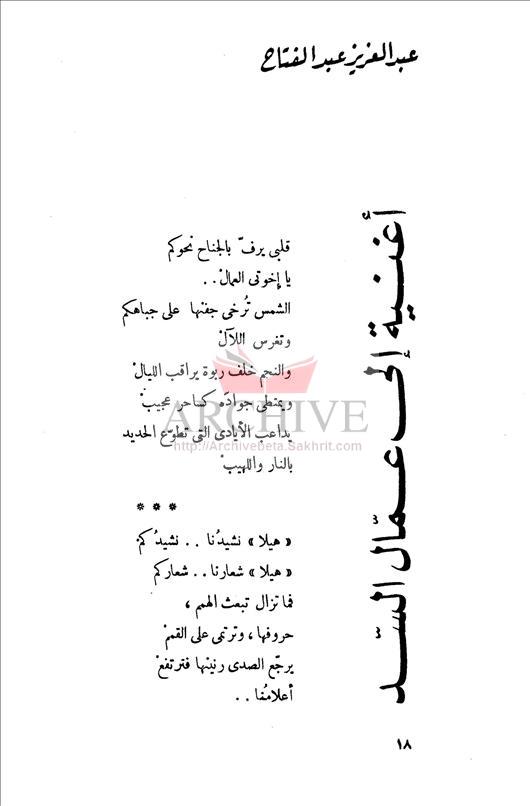 عبد العزيز عبد الفتاح
أغنية إلى عمّال السّد
قلبى يرفّ بالجناح نحوكم
يا إخوتى العمالْ . .
الشمس تُرخى جفنها على جباهكم
وتغرس اللآلْ
والنجم خلف ربوة يراقب الليالْ
ويمتطى جوادَه كساحر عجيبْ
يداعب الأيادى التى تطوّع الحديد
بالنار واللهيبْ
* * *
« هيلا » نشيدُنا . . نشيدُكمْ
« هيلا » شعارنا . . شعاركم
فما تزال تبعث الهمم ،
حروفها ، وترتمى على القممْ
يرجّع الصدى رنينها فترتفعْ
أعلامُنا . .
١٨
ARCHIVE
http://Archivebeta.Sakhrit.com